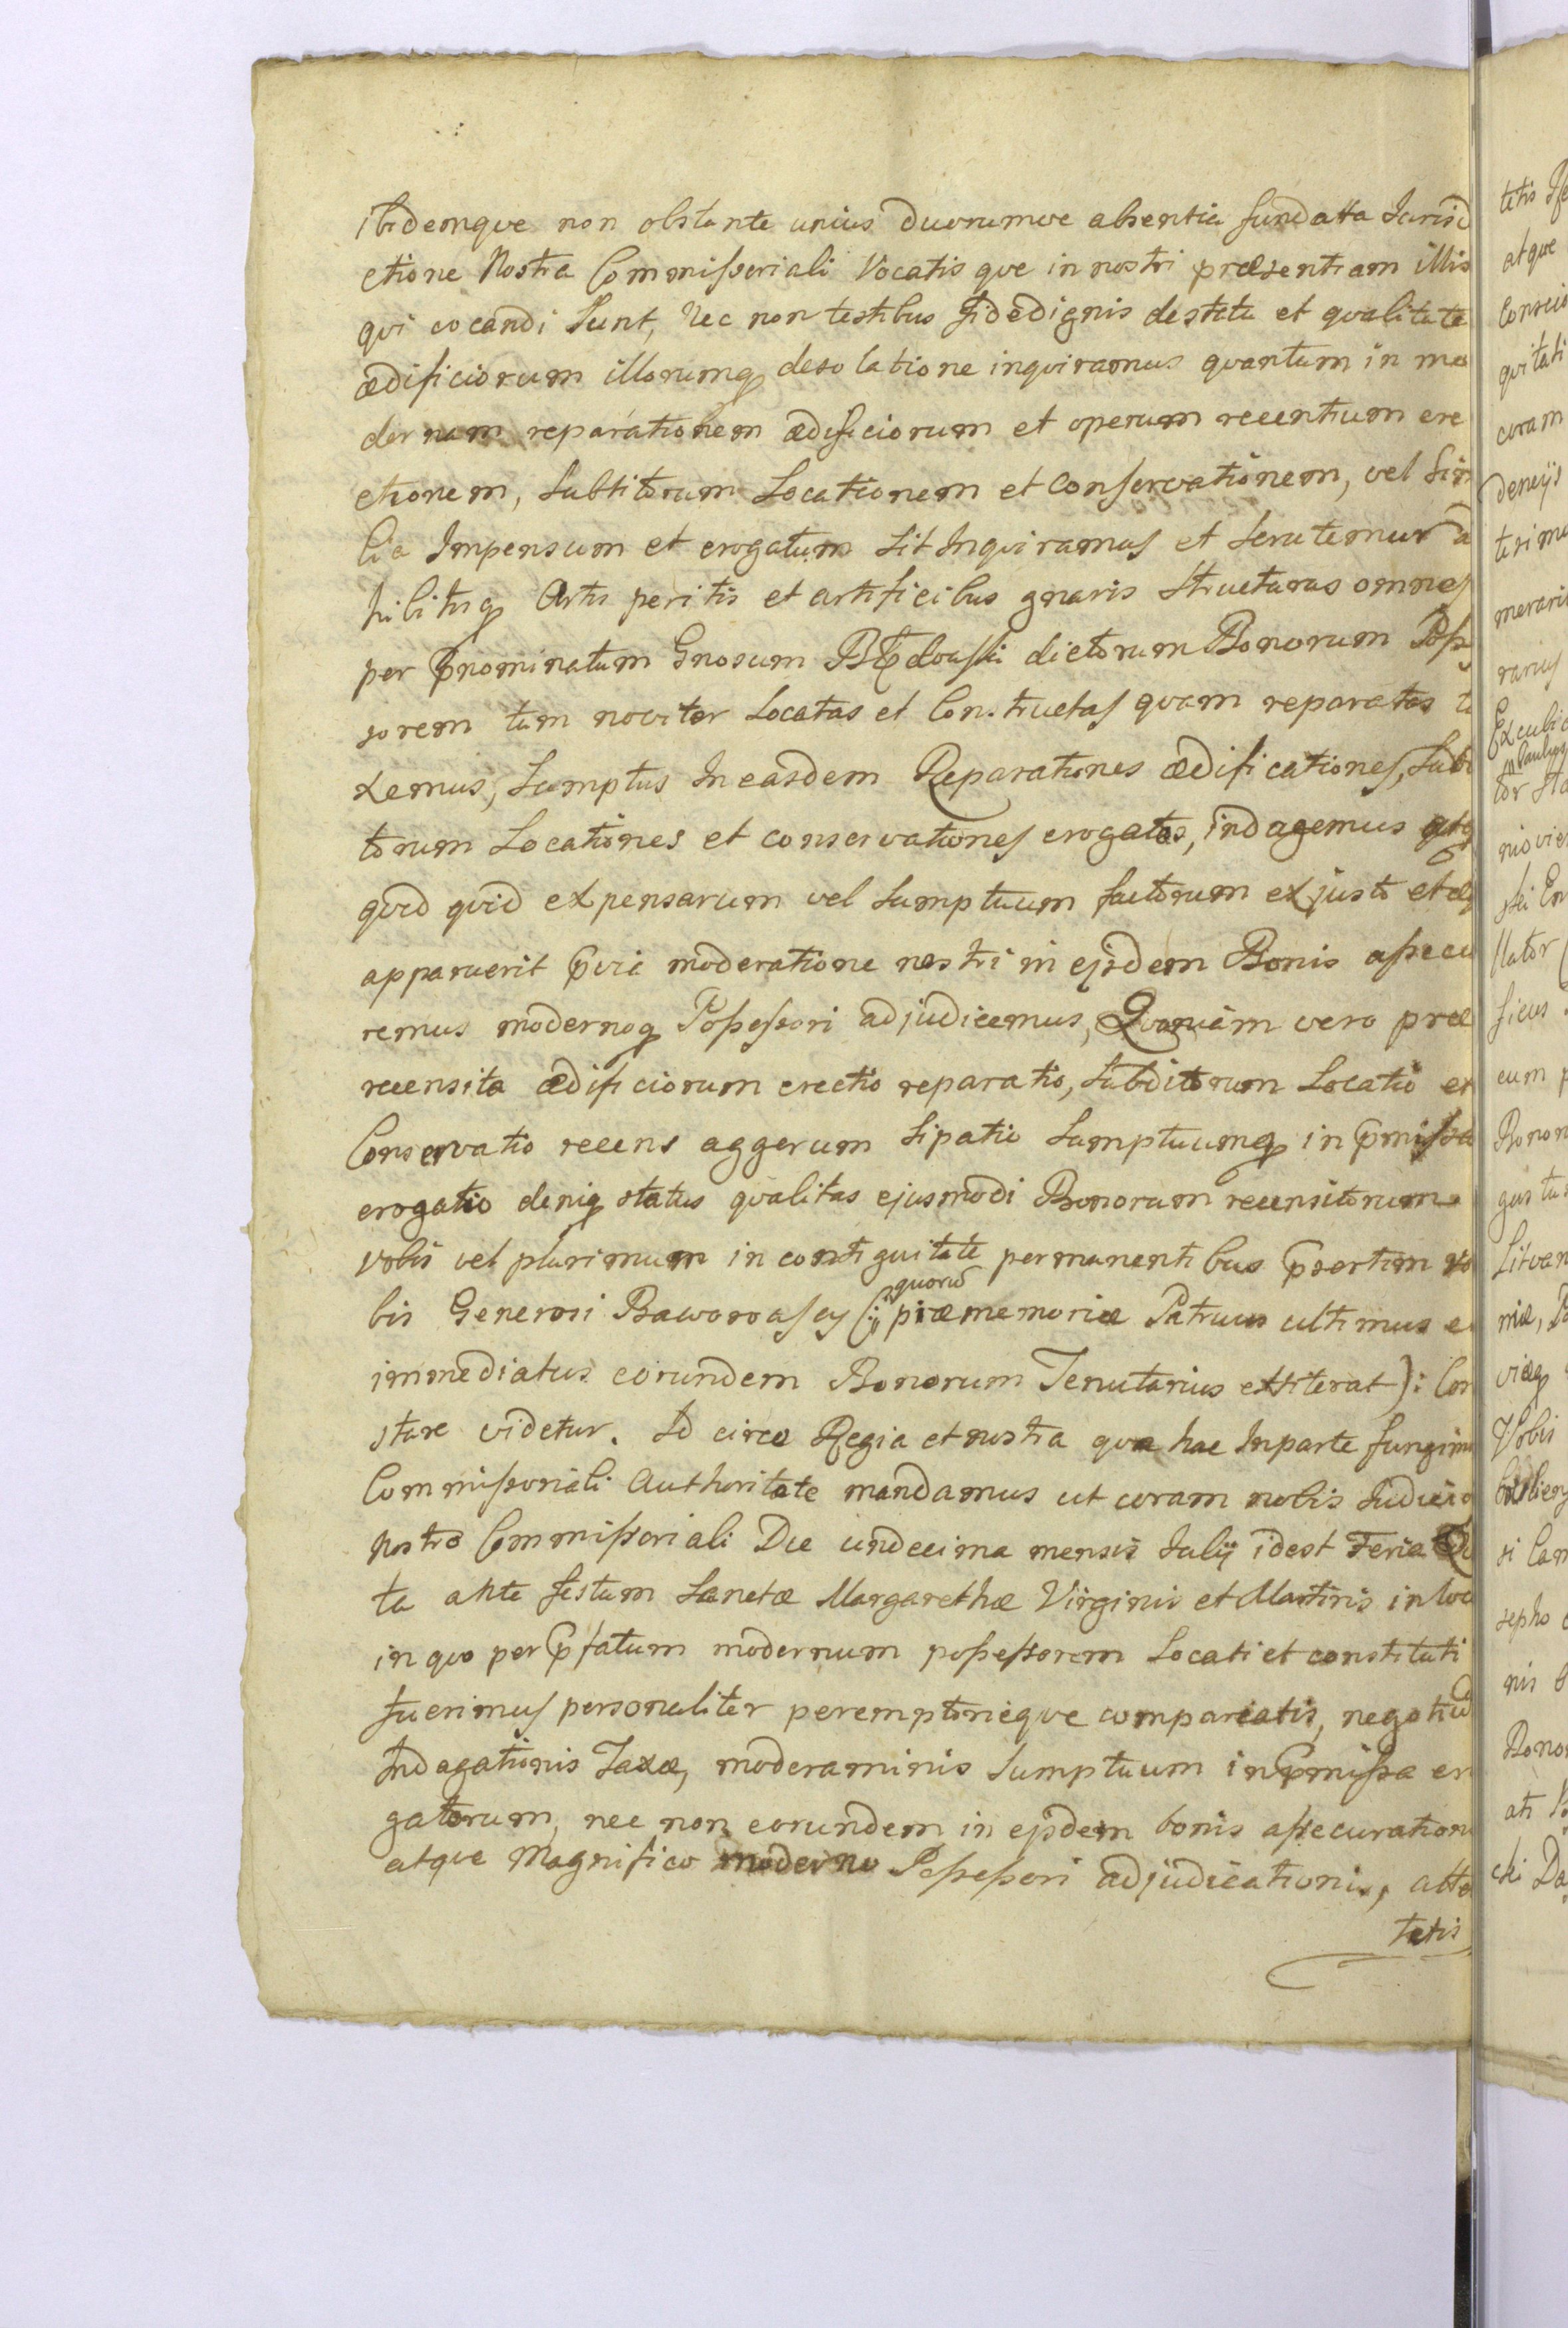 Ibidemque non obstante unius duorumve absentia fundatta Jurisd
ctione Nostra Commissoriali Vocatis que in nostri præsentiam illis
qui vocandi Sunt, Nec non testibus Fidedignis de statu et qvalitate
ædificiorum illorumq desolatione inqviramus qvantum in mo
dernam reparationem ædificiorum et operum recentium ere
ctionem, Subditorum Locationem et Conservationem, vel Sim
lia Impensum et erogatum sit Inqviramus et Scrutemur a
hibitisq Artis peritis et artificibus gnaris Structuras omnes
per Pnominatum Gnosum dictorum Bonorum Poss
sorem tum noviter Locatas et Constructas qvam reparatas ta
xemus, Sumptus In easdem Reparationes ædificationes, Subdi
torum Locationes et conservationes erogatos, indagemus atq
qvid qvid expensarum vel Sumptuum factorum ex justo et æq
apparuerit Pvia moderatione nostri in ejsdem Bonis assecu
remus modernoq Possessori adjudicemus, Qvoniam vero præ
recensita ædificiorum erectio reparatio, Subditorum Locatio et
Conservatio recens aggerum Sipatio Sumptuumq in Pmissa
erogatio deniq status qvalitas ejusmodi Bonorum recensitorum
Vobis vel plurimum in contiguitate permanentibus Psertim Vo
bis Generosi Baworowscy (: quorū piæ memoriæ Patruus ultimus et
immediatus eorundem Bonorum Tenutarius extiterat ): Con
stare videtur. Id circo Regia et nostra qva hac Inparte fungimu
Commissoriali Authoritate mandamus ut coram nobis Judicio
Nostro Commissoriali Die undecima mensis Julij idest Feria Qu
ta ante festum Sanctæ Margarethæ Virginis et Martiris in loco
in quo per Pfatum modernum possessorem Locati et constituti
fuerimus personaliter peremptorieqve compareatis, negotiū
Indagationis Taxæ, moderaminis Sumptuum in Pmissa ero
gatorum, nec non eorundem in ejsdem bonis assecurationi
atque Magnifico moderno Possessori adjudicationis, atte
tetis
tetis
atque
conscie
qvitati
coram
merarij
ranus
niovie
eum p
Bonor
Litvan
viæq
Vobis
si Cam
sepho
nis
Bonor
cki Da